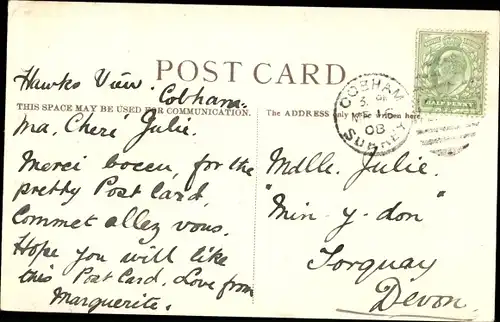 POST CARD.
THIS SPACE MAY BE USED FOR COMMUNICATION.
The ADDRESS only
Hawks View.
Cobham.
Ma, Cheri Julie.
Merci bocen, for the
pretty Post Card,
Commet allez vous.
Hope you will like
this Post Card. Love from
Marguerite.
COBHAM
SURREY
08
HALF PENNY
Mdlle. Julie.
"Min-y-don"
Torquay
Devon.